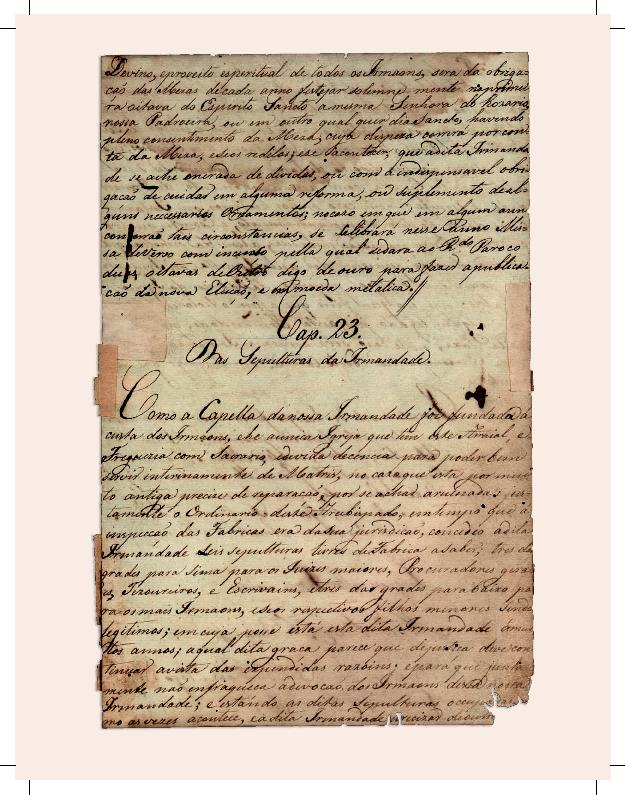 Devino, eproveito espiritual de todos os Irmaons, sera da obriga=
caõ das Mezas decada anno festejar solemne mente naprimei
ra oitava do Espirito Sancto anuma Senhora do Rozario,
nossa Padroeira, ou em outro qual quer dia Sancto, havendo
pleno consentimento da Meza, cuja despeza correrá por con
ta da Meza, eseos reditos; ese sacontecer, que adita Irmanda
de se ache onerada de dividas, ou com a indispensavel obri
gacaõ de cuidar em alguma reforma, ou suplemento de al
guns necessarios Ornamentos; nocazo em que em algum ann
tais circonstancias, se celebrará nesse anno Mis=
sa deverso com incenso pella qual sedara ao R.do Paroco
duas oitavas de digo de ouro para fazer apublica
caõ da nova Eleiçaõ, e em moeda metalica.//
Cap. 23.
Das Sepulturas da Irmandade.
Como a Capella danossa Irmandade foi fundada á
custa dos Irmaons, ehe aunica Igreja que em este Arraial, e
Freguezia com Sacrario, edevida decencia para poder bem
servir interinamente de Matriz, no cazo que esta por mui
to antiga precize de separacaõ, por se achar aruinada; jus
tamente o Ordinario deste Bisbispado, emtempo que a
inspecçaõ das Fabricas era dasua jurisdiçaõ, concedeo adita
Irmandade seis sepulturas livres defabrica asaber; tres das
grades para sima para os Juizes maiores, Procuradores gera
es, Tezoureiros, e Escrivains, etres das grades para baixo pa
ra os mais Irmaons, eseos respectivos filhos menores sendo
legitimos; emcuja posse está esta dita Irmandade amui
tos annos; aqual dita graca parece que dejustica devecon
tinuar avista das expendidas razoins; epara que junta
mente naõ enfraqueca adevocaõ dos Irmaons desta nossa
Irmandade; e estando as ditas sepulturas occupadas
mo as vezes acontece, ea dita Irmandade precizar deoum